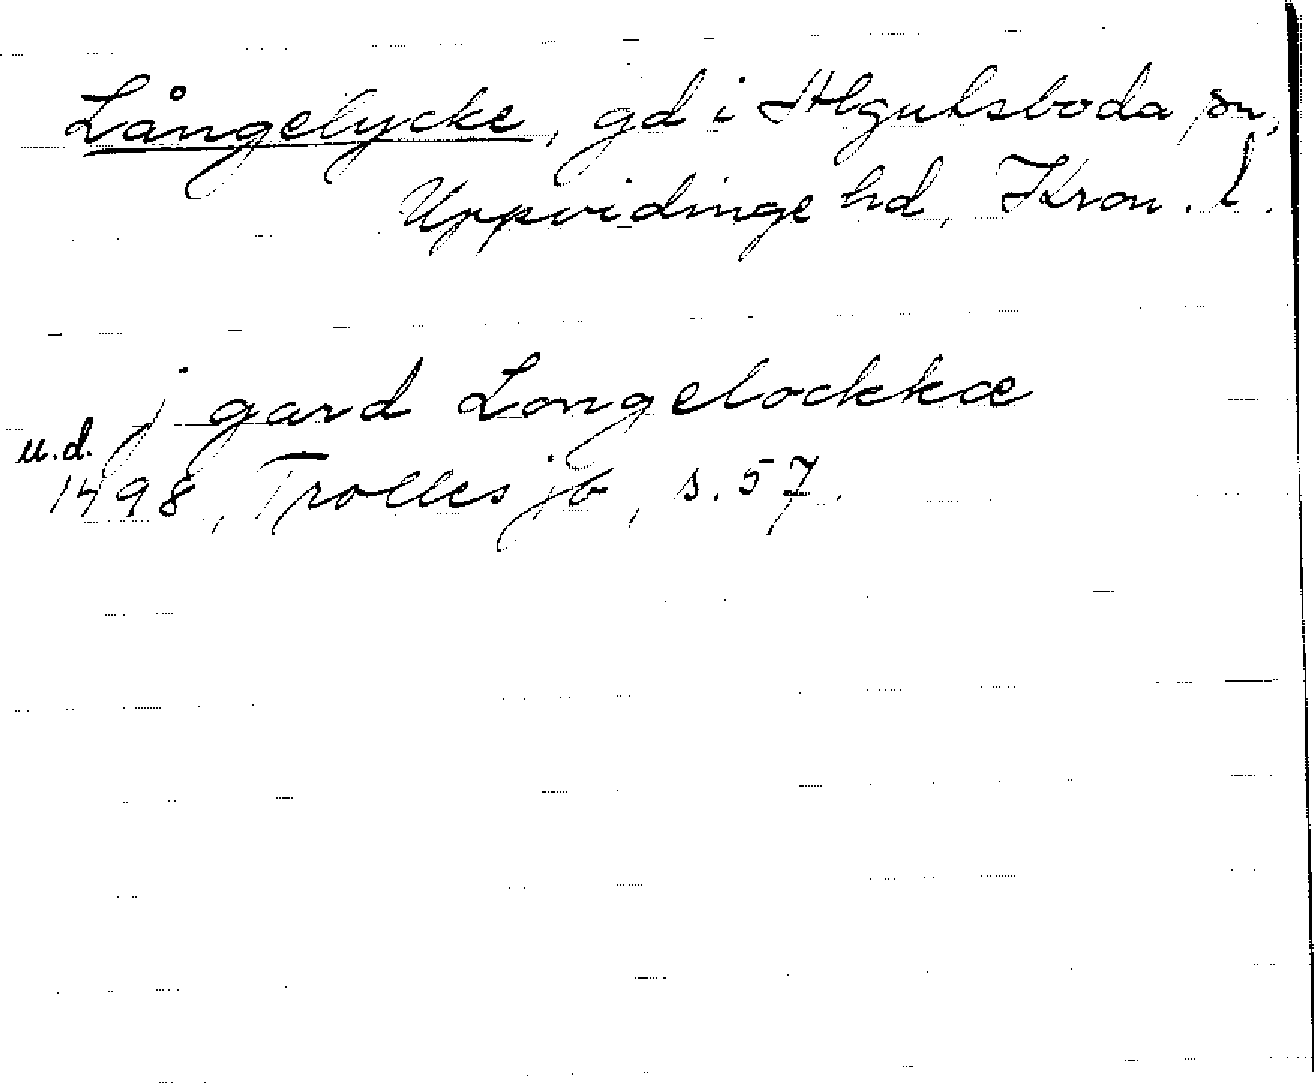 Långelycke, gd i Älghultsboda sn,
Uppvidinge hd, Kron. l.
j gard Longelockkæ
u.d.
1498, Trolles jb, s. 57.